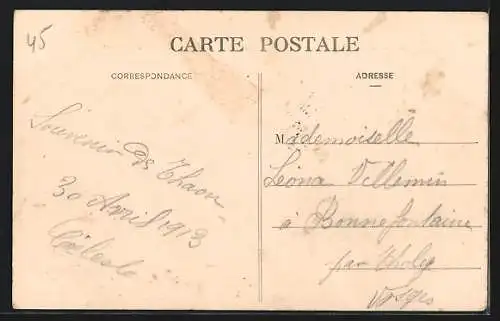 45
CARTE POSTALE
CORRESPONDANCE
ADRESSE
Souvenir de Thaon
30 Avril 1913
Céleste
Mademoiselle
Léona Villemin
à Bonnefontaine
par Tholy
Vosges